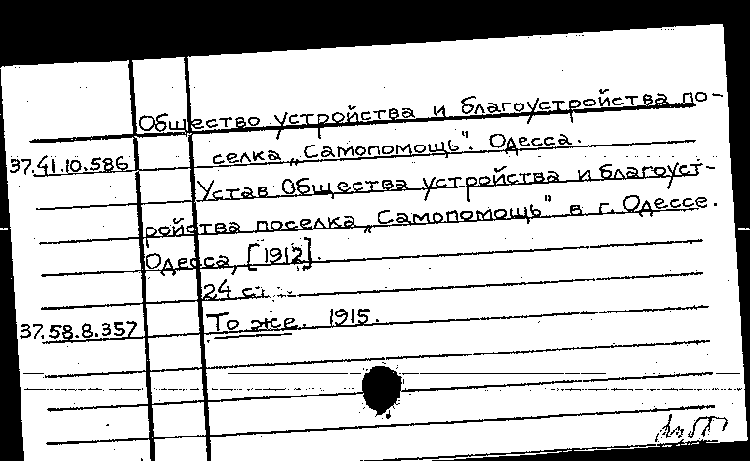 Общество устройства и благоустройства по-
37.41.10.586 селка „Самопомощь". Одесса.
Устав Общества устройства и благоуст-
ройства поселка „Самопомощь" в г. Одессе.
Одесса, [1912].
24 ст
37.58.8.357 То же. 1915.